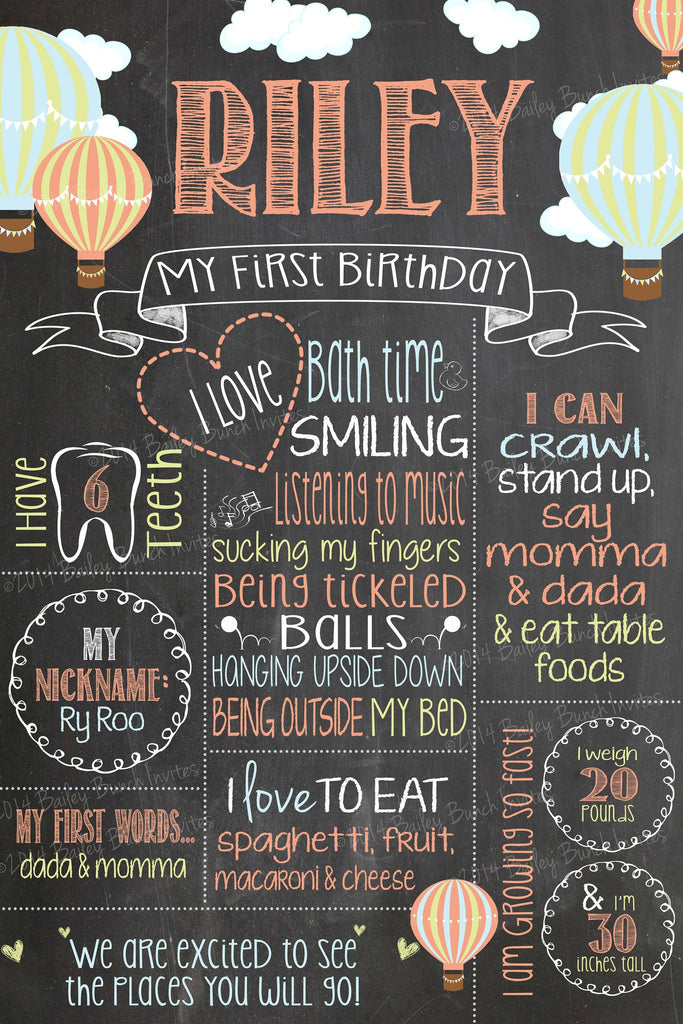 RILEY
MY FIRST BIRTHDAY
I LOVE
Bath time
SMILING
Listening to music
sucking my fingers
Being tickeled
BALLS
HANGING UPSIDE DOWN
BEING OUTSIDE MY BED
I Have
6
Teeth
MY
NICKNAME:
Ry Roo
MY FIRST WORDS...
dada & momma
I love TO EAT
spaghetti, fruit,
macaroni & cheese
I CAN
crawl,
stand up,
say
momma
& dada
& eat table
foods
I am GROWING so fast!
I weigh
20
pounds
& I'm
30
inches tall
We are excited to see
the places you will go!
©2014 Bailey Bunch Invites